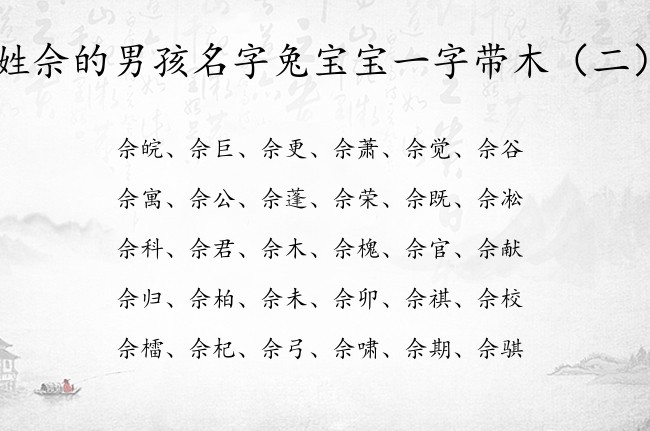 姓佘的男孩名字兔宝宝一字带木（二）
佘皖、佘巨、佘更、佘萧、佘觉、佘谷
佘寓、佘公、佘蓬、佘荣、佘既、佘凇
佘科、佘君、佘木、佘槐、佘官、佘献
佘归、佘柏、佘未、佘卯、佘祺、佘校
佘檑、佘杞、佘弓、佘啸、佘期、佘骐